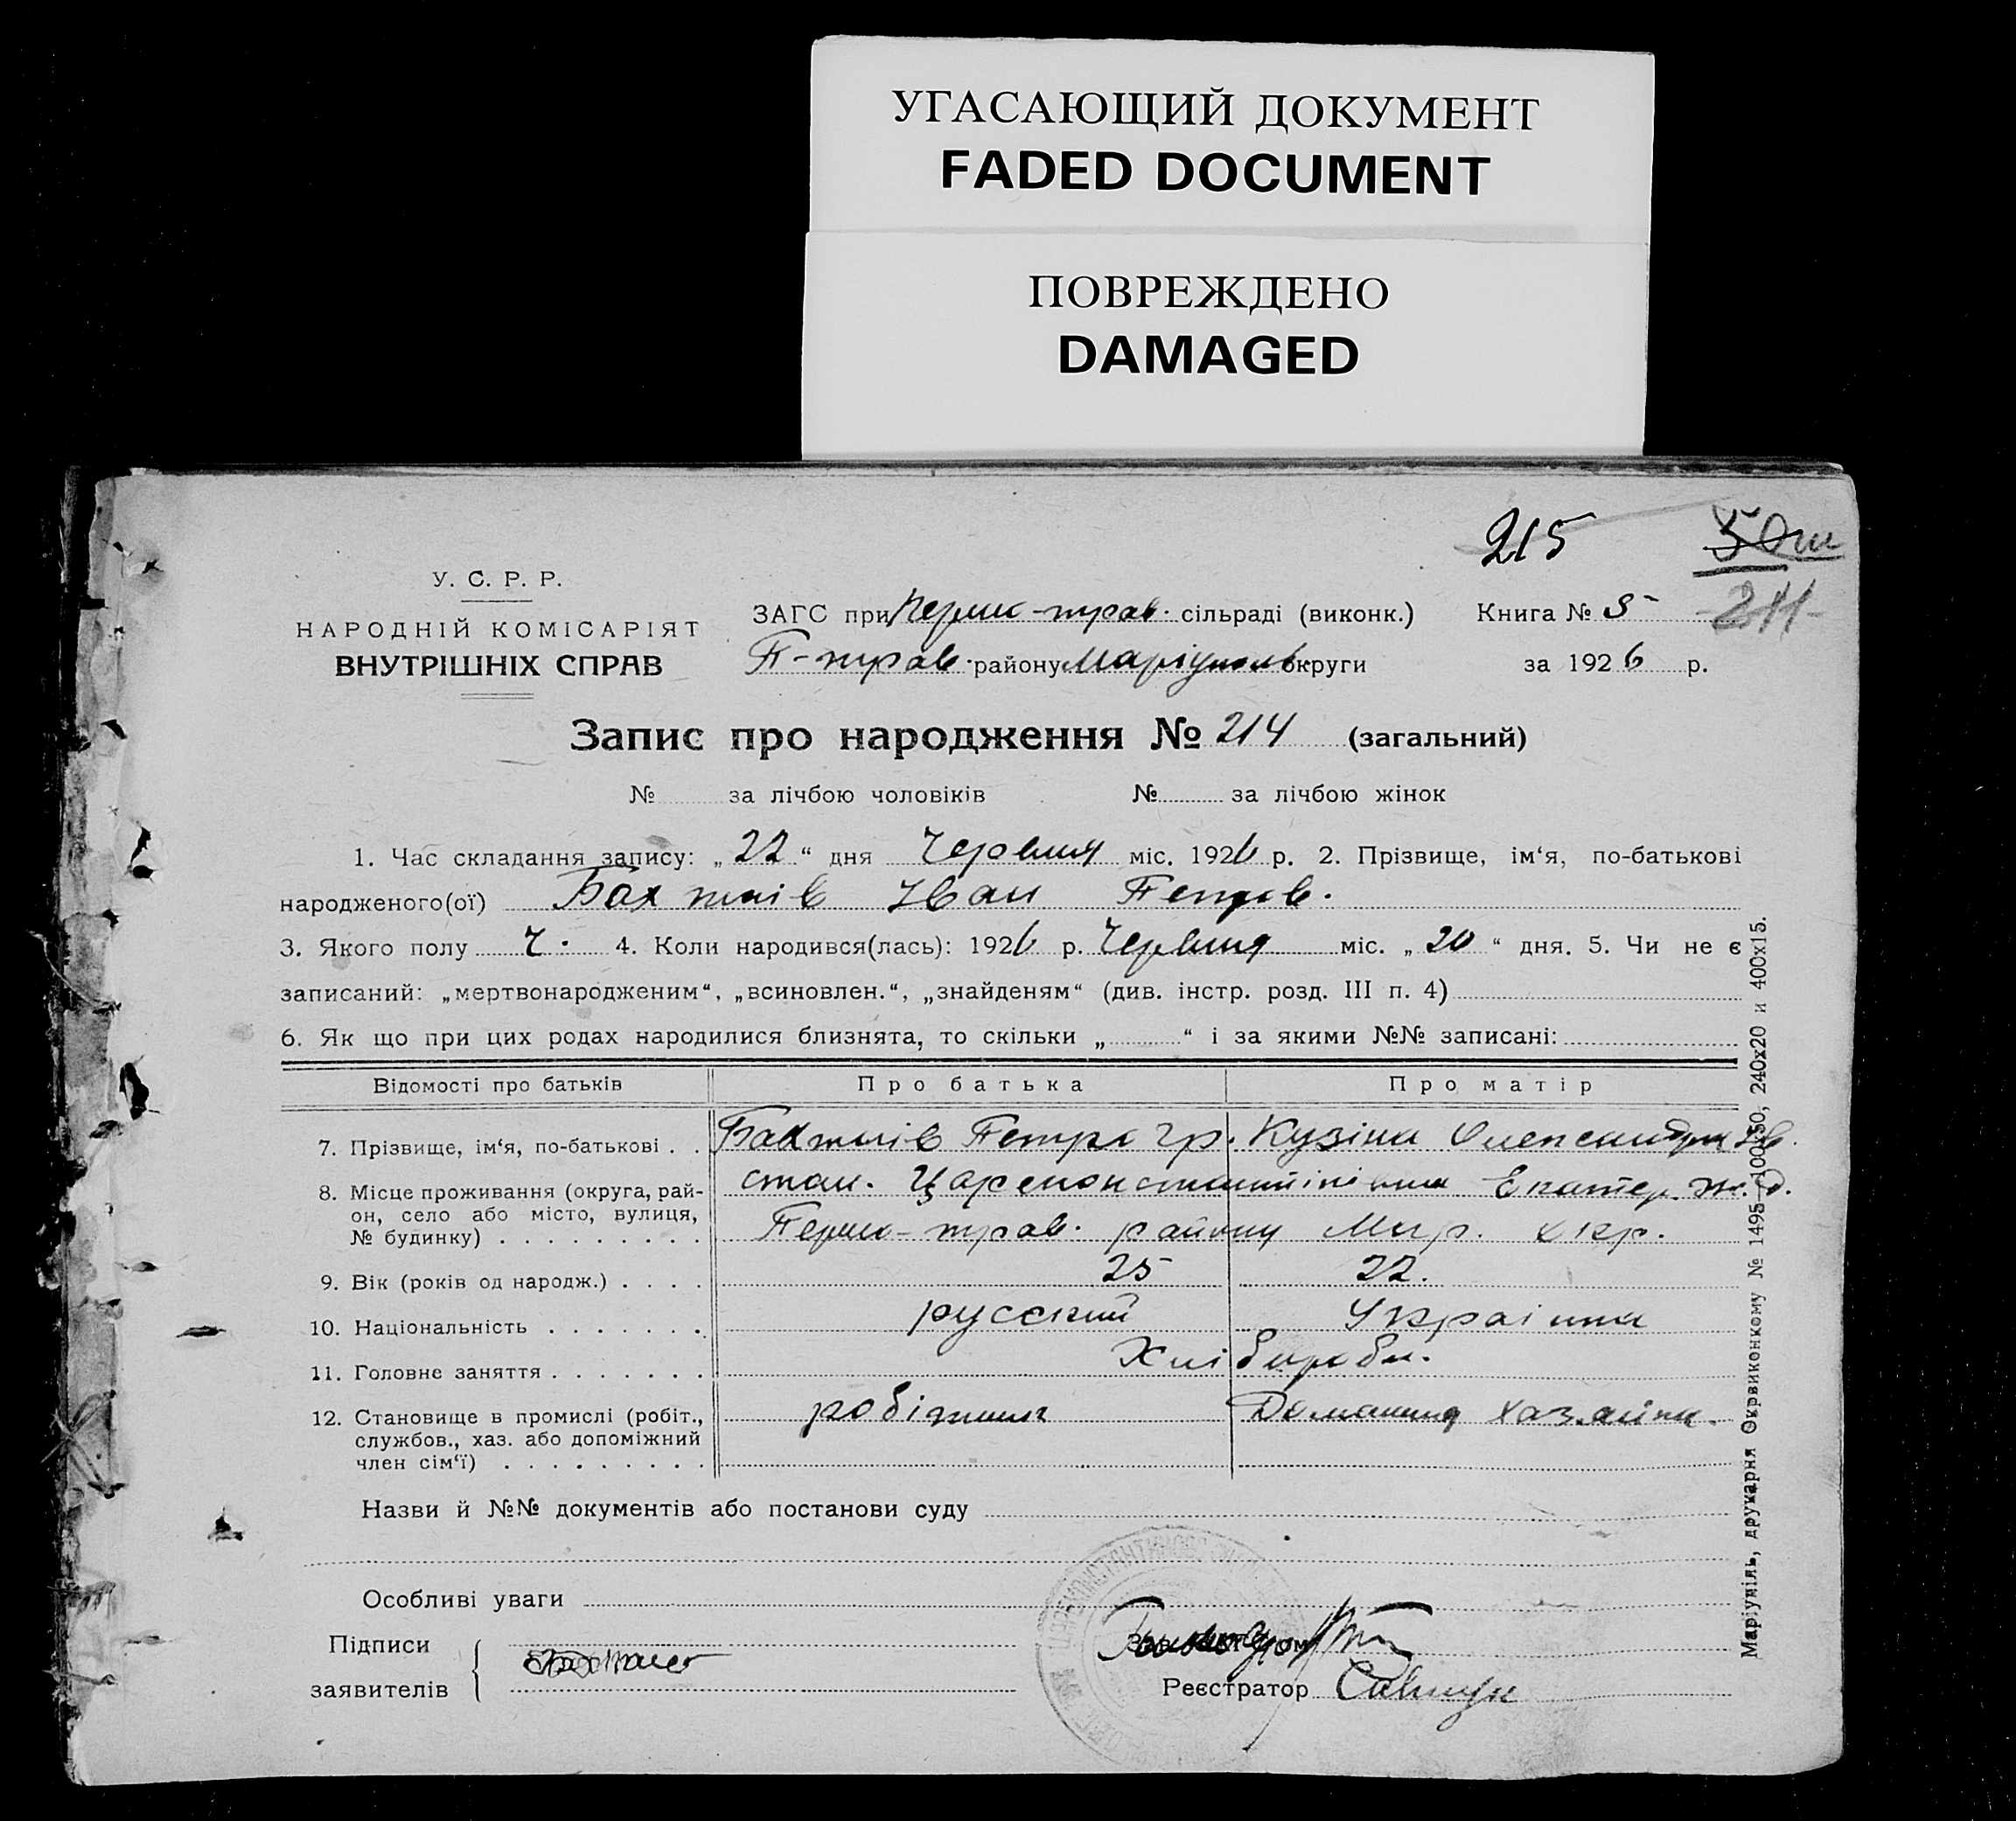 УГАСАЮЩИЙ ДОКУМЕНТ
FADED DOCUMENT
ПОВРЕЖДЕНО
DAMAGED
215 50
211
У. С. Р. Р.
НАРОДНІЙ КОМІСАРІЯТ
ВНУТРІШНІХ СПРАВ
ЗАГС при Перш-трав. сільраді (виконк.) Книга № 5
П-трав. району Маріуполь округи за 1926 р.
Запис про народження № 214 (загальний)
№ за лічбою чоловіків № за лічбою жінок
1. Час складання запису: „22“ дня Червня міс. 1926 р. 2. Прізвище, ім‘я, по-батькові
народженого(ої) Бахтиів Іван Петров.
3. Якого полу Ч. 4. Коли народився(лась): 1926 р. Червня міс. „20“ дня. 5. Чи не є
записаний: „мертвонародженим“, „всиновлен.“, „знайденям“ (див. інстр. розд. III п. 4)
6. Як що при цих родах народилися близнята, то скільки „ “ і за якими №№ записані:
Відомості про батьків Про батька Про матір
7. Прізвище, ім‘я, по-батькові . . Бахтиів Петро Гр. Кузіна Олександра Ів.
8. Місце проживання (округа, рай-
он, село або місто, вулиця,
№ будинку) . . . . . . . . .
стан. Цареконстантінівка Екатер. ж. д.
Перш-трав. району Мар. окр.
9. Вік (років од народж.) . . . . 25 22.
10. Національність . . . . . . . русский Українка
11. Головне заняття . . . . . . . Хлібороби.
12. Становище в промислі (робіт.,
службов., хаз. або допоміжний
член сім‘ї) . . . . . . . . .
робітник Домашня хазяйка.
Назви й №№ документів або постанови суду
Особливі уваги
Підписи
заявителів
Реєстратор Савчук
Маріупіль, друкарня Окрвиконкому № 1495—100х50, 240х20 и 400х15.